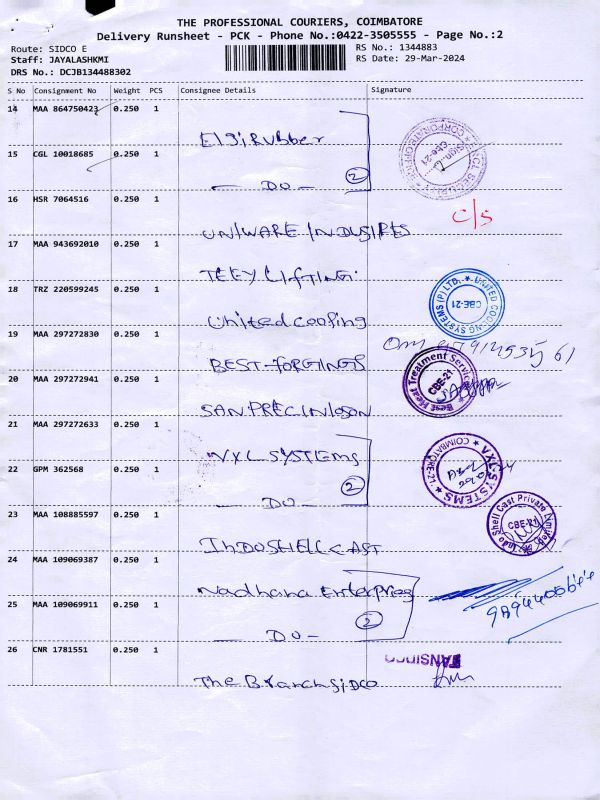 THE PROFESSIONAL COURIERS, COIMBATORE
Delivery Runsheet - PCK - Phone No.:0422-3505555 - Page No.:2
Route: SIDCO E
RS No.: 1344883
Staff: JAYALASHKMI
RS Date: 29-Mar-2024
DRS No.: DCJB134488302
S No Consignment No Weight PCS Consignee Details Signature
14 MAA 864750423 0.250 1
Elgi Rubber
15 CGL 10018685 0.250 1
— DO — 2
16 HSR 7064516 0.250 1
C/S
UNIWARE INDUSIRES
17 MAA 943692010 0.250 1
TEEY LIFTING
18 TRZ 220599245 0.250 1
United cooling
UNITED COOLING SYSTEMS (P) LTD. ★ CBE-21
19 MAA 297272830 0.250 1
BEST-FORGINGS
20 MAA 297272941 0.250 1
Best Heat Treatment Service CBE-21
SAN PRECINISON
21 MAA 297272633 0.250 1
VXL SYSTEMS
VXL SYSTEMS ★ COIMBATORE-21 ★
22 GPM 362568 0.250 1
— DO — 2
23 MAA 108885597 0.250 1
Indo Shell Cast Private Limited CBE-21
INDOSHELL CAST
24 MAA 109069387 0.250 1
Nadhana Enterprises
25 MAA 109069911 0.250 1
— DO — 2
26 CNR 1781551 0.250 1
TANSIDCO
The Branch SIDCO